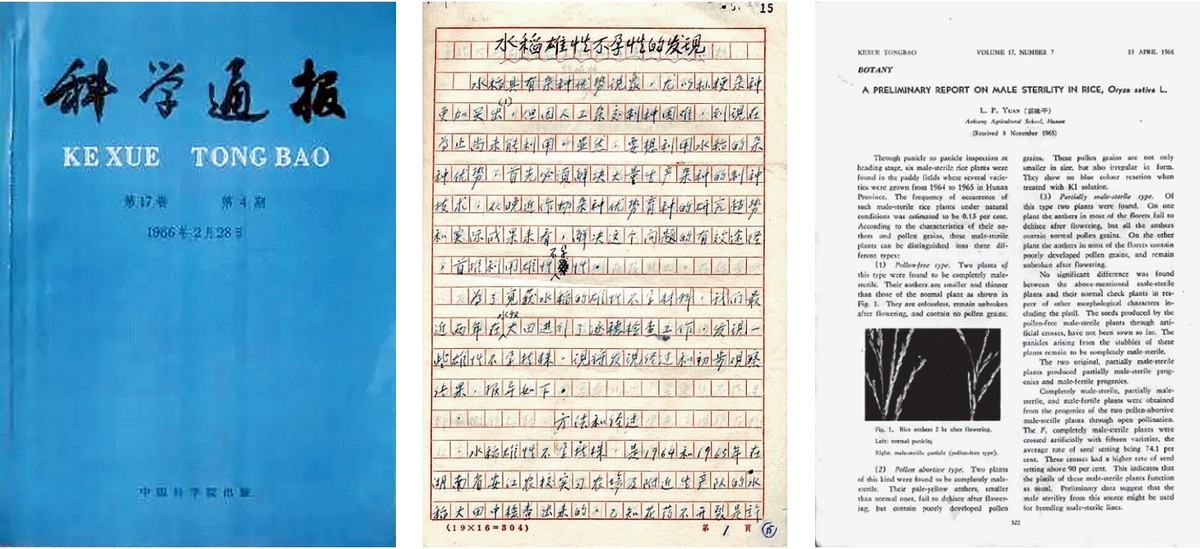 科学通报
KEXUE TONGBAO
第17卷 第4期
1966年2月28日
中国科学院出版
15
水稻雄性不孕性的发现
水稻具有杂种优势现象，尤以籼粳杂种
更加突出，但因人工杂交制种困难，到现在
为止尚未能利用。显然，要想利用水稻的杂
种优势，首先必须解决大量生产杂种的制种
技术，从晚近作物杂种优势育种的研究趋势
和实际成果来看，解决这个问题的有效途径
，首推利用雄性不孕性。
为了寻获水稻的雄性不孕材料，我们最
近两年在水稻大田进行了逐穗检查工作，发现一
些雄性不孕植株，现将发现经过和初步观察
结果，报导如下。
方法和经过
水稻雄性不孕植株，是1964和1965年在
湖南省安江农校实习农场及附近生产队的水
稻大田中检查出来的，已知花药不开裂是许
(19×16=304) 第 1 页
KEXUE TONGBAO VOLUME 17, NUMBER 7 15 APRIL 1966
BOTANY
A PRELIMINARY REPORT ON MALE STERILITY IN RICE, Oryza sativa L.
L. P. YUAN (袁隆平)
Ankiang Agricultural School, Hunan
(Received 8 November 1965)
Through panicle to panicle inspection at
heading stage, six male-sterile rice plants were
found in the paddy fields where several varie-
ties were grown from 1964 to 1965 in Hunan
Province. The frequency of occurrence of
such male-sterile rice plants under natural
conditions was estimated to be 0.13 per cent.
According to the characteristics of their an-
thers and pollen grains, these male-sterile
plants can be distinguished into three dif-
ferent types:
(1) Pollen-free type. Two plants of
this type were found to be completely male-
sterile. Their anthers are smaller and thinner
than those of the normal plant as shown in
Fig. 1. They are colourless, remain unbroken
after flowering, and contain no pollen grains.
Fig. 1. Rice anthers 2 hr after flowering.
Left: normal panicle;
Right: male-sterile panicle (pollen-free type).
(2) Pollen abortive type. Two plants
of this kind were found to be completely male-
sterile. Their pale-yellow anthers, smaller
than normal ones, fail to dehisce after flower-
ing, but contain poorly developed pollen
grains. These pollen grains are not only
smaller in size, but also irregular in form.
They show no blue colour reaction when
treated with KI solution.
(3) Partially male-sterile type. Of
this type two plants were found. On one
plant the anthers in most of the florets fail to
dehisce after flowering, but all the anthers
contain normal pollen grains. On the other
plant the anthers in most of the florets contain
poorly developed pollen grains, and remain
unbroken after flowering.
No significant difference was found
between the above-mentioned male-sterile
plants and their normal check plants in res-
pect of other morphological characters in-
cluding the pistil. The seeds produced by the
pollen-free male-sterile plants through arti-
ficial crosses, have not been sown so far. The
panicles arising from the stubbles of these
plants remain to be completely male-sterile.
The two original, partially male-sterile
plants produced partially male-sterile prog-
enies and male-fertile progenies.
Completely male-sterile, partially male-
sterile, and male-fertile plants were obtained
from the progenies of the two pollen-abortive
male-sterile plants through open pollination.
The F₁ completely male-sterile plants were
crossed artificially with fifteen varieties, the
average rate of seed setting being 74.1 per
cent. Three crosses had a higher rate of seed
setting above 90 per cent. This indicates that
the pistils of these male-sterile plants function
as usual. Preliminary data suggest that the
male sterility from this source might be used
for breeding male-sterile lines.
322